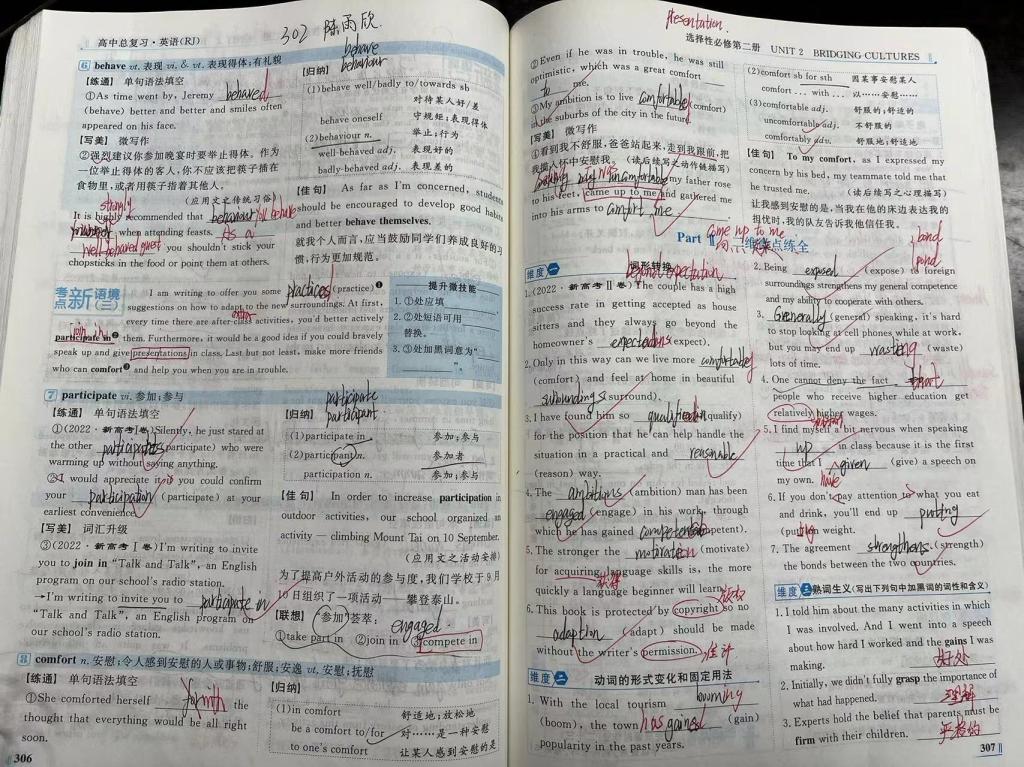 高中总复习·英语(RJ)
302 陈雨欣
6 behave vt. 表现 vi. & vt. 表现得体;有礼貌
【练通】 单句语法填空
①As time went by, Jeremy behaved
(behave) better and better and smiles often
appeared on his face.
【写美】 微写作
②强烈建议你参加晚宴时要举止得体。作为
一位举止得体的客人,你不应该把筷子插在
食物里,或者用筷子指着其他人。
(应用文之传统习俗)
strongly
It is highly recommended that behaviour
when attending feasts. As a
well-behaved guest you shouldn't stick your
chopsticks in the food or point them at others.
behave
behaviour
【归纳】
(1)behave well/badly to/towards sb
对待某人好/差
behave oneself 守规矩;表现得体
(2)behaviour n. 举止;行为
well-behaved adj. 表现好的
badly-behaved adj. 表现差的
【佳句】 As far as I'm concerned, students
should be encouraged to develop good habits
and better behave themselves.
就我个人而言,应当鼓励同学们养成良好的习
惯,行为更加规范。
考点新语境(三)
I am writing to offer you some practices (practice)❶
suggestions on how to adapt to the new surroundings. At first,
every time there are after-class activities, you'd better actively
join in
participate in❷ them. Furthermore, it would be a good idea if you could bravely
speak up and give presentations in class. Last but not least, make more friends
who can comfort❸ and help you when you are in trouble.
提升微技能
1. ①处应填
2. ②处短语可用
替换。
3. ③处加黑词意为“
”。
7 participate vi. 参加;参与
【练通】 单句语法填空
①(2022·新高考Ⅰ卷)Silently, he just stared at
the other participates (participate) who were
warming up without saying anything.
②I would appreciate it if you could confirm
your participation (participate) at your
earliest convenience.
【写美】 词汇升级
③(2022·新高考Ⅰ卷)I'm writing to invite
you to join in “Talk and Talk”, an English
program on our school's radio station.
→I'm writing to invite you to participate in
“Talk and Talk”, an English program on
our school's radio station.
participate
participant
【归纳】
(1)participate in 参加;参与
(2)participant n. 参加者
participation n. 参加;参与
【佳句】 In order to increase participation in
outdoor activities, our school organized an
activity — climbing Mount Tai on 10 September.
(应用文之活动安排)
为了提高户外活动的参与度,我们学校于9月
10日组织了一项活动——攀登泰山。
【联想】 “参加”荟萃:
engaged
①take part in ②join in ③compete in
8 comfort n. 安慰;令人感到安慰的人或事物;舒服;安逸 vt. 安慰;抚慰
【练通】 单句语法填空
①She comforted herself with the
thought that everything would be all right
soon.
【归纳】
(1)in comfort 舒适地;放松地
be a comfort to/for 对……是一种安慰
to one's comfort 让某人感到安慰的是
306
presentation.
选择性必修第二册 UNIT 2 BRIDGING CULTURES
②Even if he was in trouble, he was still
optimistic, which was a great comfort
to me.
③My ambition is to live comfortable (comfort)
in the suburbs of the city in the future.
【写美】 微写作
④看到我不舒服,爸爸站起来,走到我跟前,把
我搂入怀中安慰我。(读后续写之动作链描写)
my father rose
to his feet, came up to me and gathered me
into his arms to comfort me
come up to me
(2)comfort sb for sth 因某事安慰某人
comfort ... with ... 以……安慰……
(3)comfortable adj. 舒服的;舒适的
uncomfortable adj. 不舒服的
comfortably adv. 舒服地;舒适地
【佳句】 To my comfort, as I expressed my
concern by his bed, my teammate told me that
he trusted me. (读后续写之心理描写)
让我感到安慰的是,当我在他的床边表达我的
担忧时,我的队友告诉我他信任我。
维度一 词形转换
beyond expectation
1. (2022·新高考Ⅱ卷)The couple have a high
success rate in getting accepted as house
sitters and they always go beyond the
homeowner's expectations (expect).
2. Only in this way can we live more comfortably
(comfort) and feel at home in beautiful
surroundings (surround).
3. I have found him so qualified (qualify)
for the position that he can help handle the
situation in a practical and reasonable
(reason) way.
4. The ambitious (ambition) man has been
engaged (engage) in his work, through
which he has gained competence (competent).
5. The stronger the motivation (motivate)
for acquiring language skills is, the more
获得
quickly a language beginner will learn.
版权
6. This book is protected by copyright so no
adaption (adapt) should be made
without the writer's permission. 准许
维度二 动词的形式变化和固定用法
1. With the local tourism booming
(boom), the town has gained (gain)
popularity in the past years.
2. Being exposed (expose) to foreign
surroundings strengthens my general competence
and my ability to cooperate with others.
bond
3. Generally (general) speaking, it's hard
to stop looking at cell phones while at work,
but you may end up wasting (waste)
lots of time.
4. One cannot deny the fact that
people who receive higher education get
relatively higher wages.
5. I find myself a bit nervous when speaking
up in class because it is the first
time that I have given (give) a speech on
my own.
6. If you don't pay attention to what you eat
and drink, you'll end up putting
(put) on weight.
7. The agreement strengthens (strength)
the bonds between the two countries.
维度三 熟词生义(写出下列句中加黑词的词性和含义)
1. I told him about the many activities in which
I was involved. And I went into a speech
about how hard I worked and the gains I was
making. 好处
2. Initially, we didn't fully grasp the importance of
what had happened. 理解
3. Experts hold the belief that parents must be
firm with their children. 严格的
307